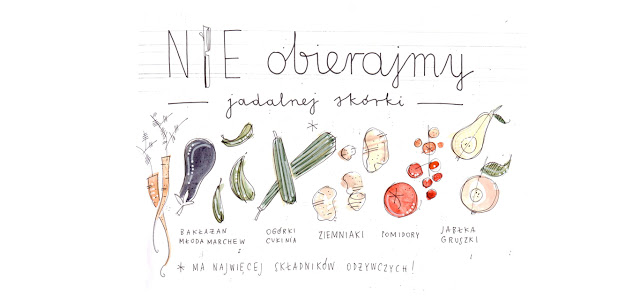 NIE obierajmy
jadalnej skórki
*
BAKŁAŻAN
MŁODA MARCHEW
OGÓRKI
CUKINIA
ZIEMNIAKI
POMIDORY
JABŁKA
GRUSZKI
* MA NAJWIĘCEJ SKŁADNIKÓW ODŻYWCZYCH!